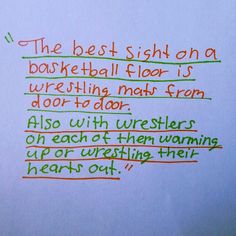 "The best sight on a
basketball floor is
wrestling mats from
door to door.
Also with wrestlers
on each of them warming
up or wrestling their
hearts out."